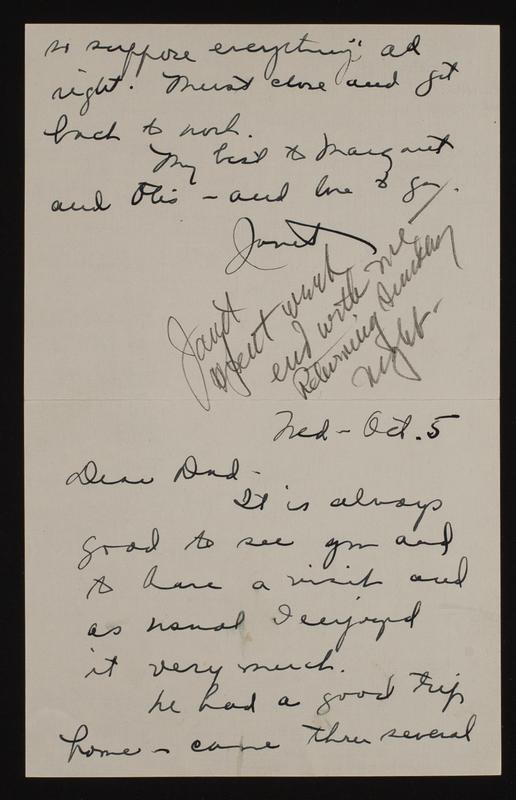 so suppose everything all
right. Must close and get
back to work.
My best to Margaret
and Otis – and love to you.
Janet
Janet
spent week
end with me –
Returning Sunday
night –
Wed – Oct. 5
Dear Dad –
It is always
good to see you and
to have a visit and
as usual I enjoyed
it very much.
We had a good trip
home – came thru several